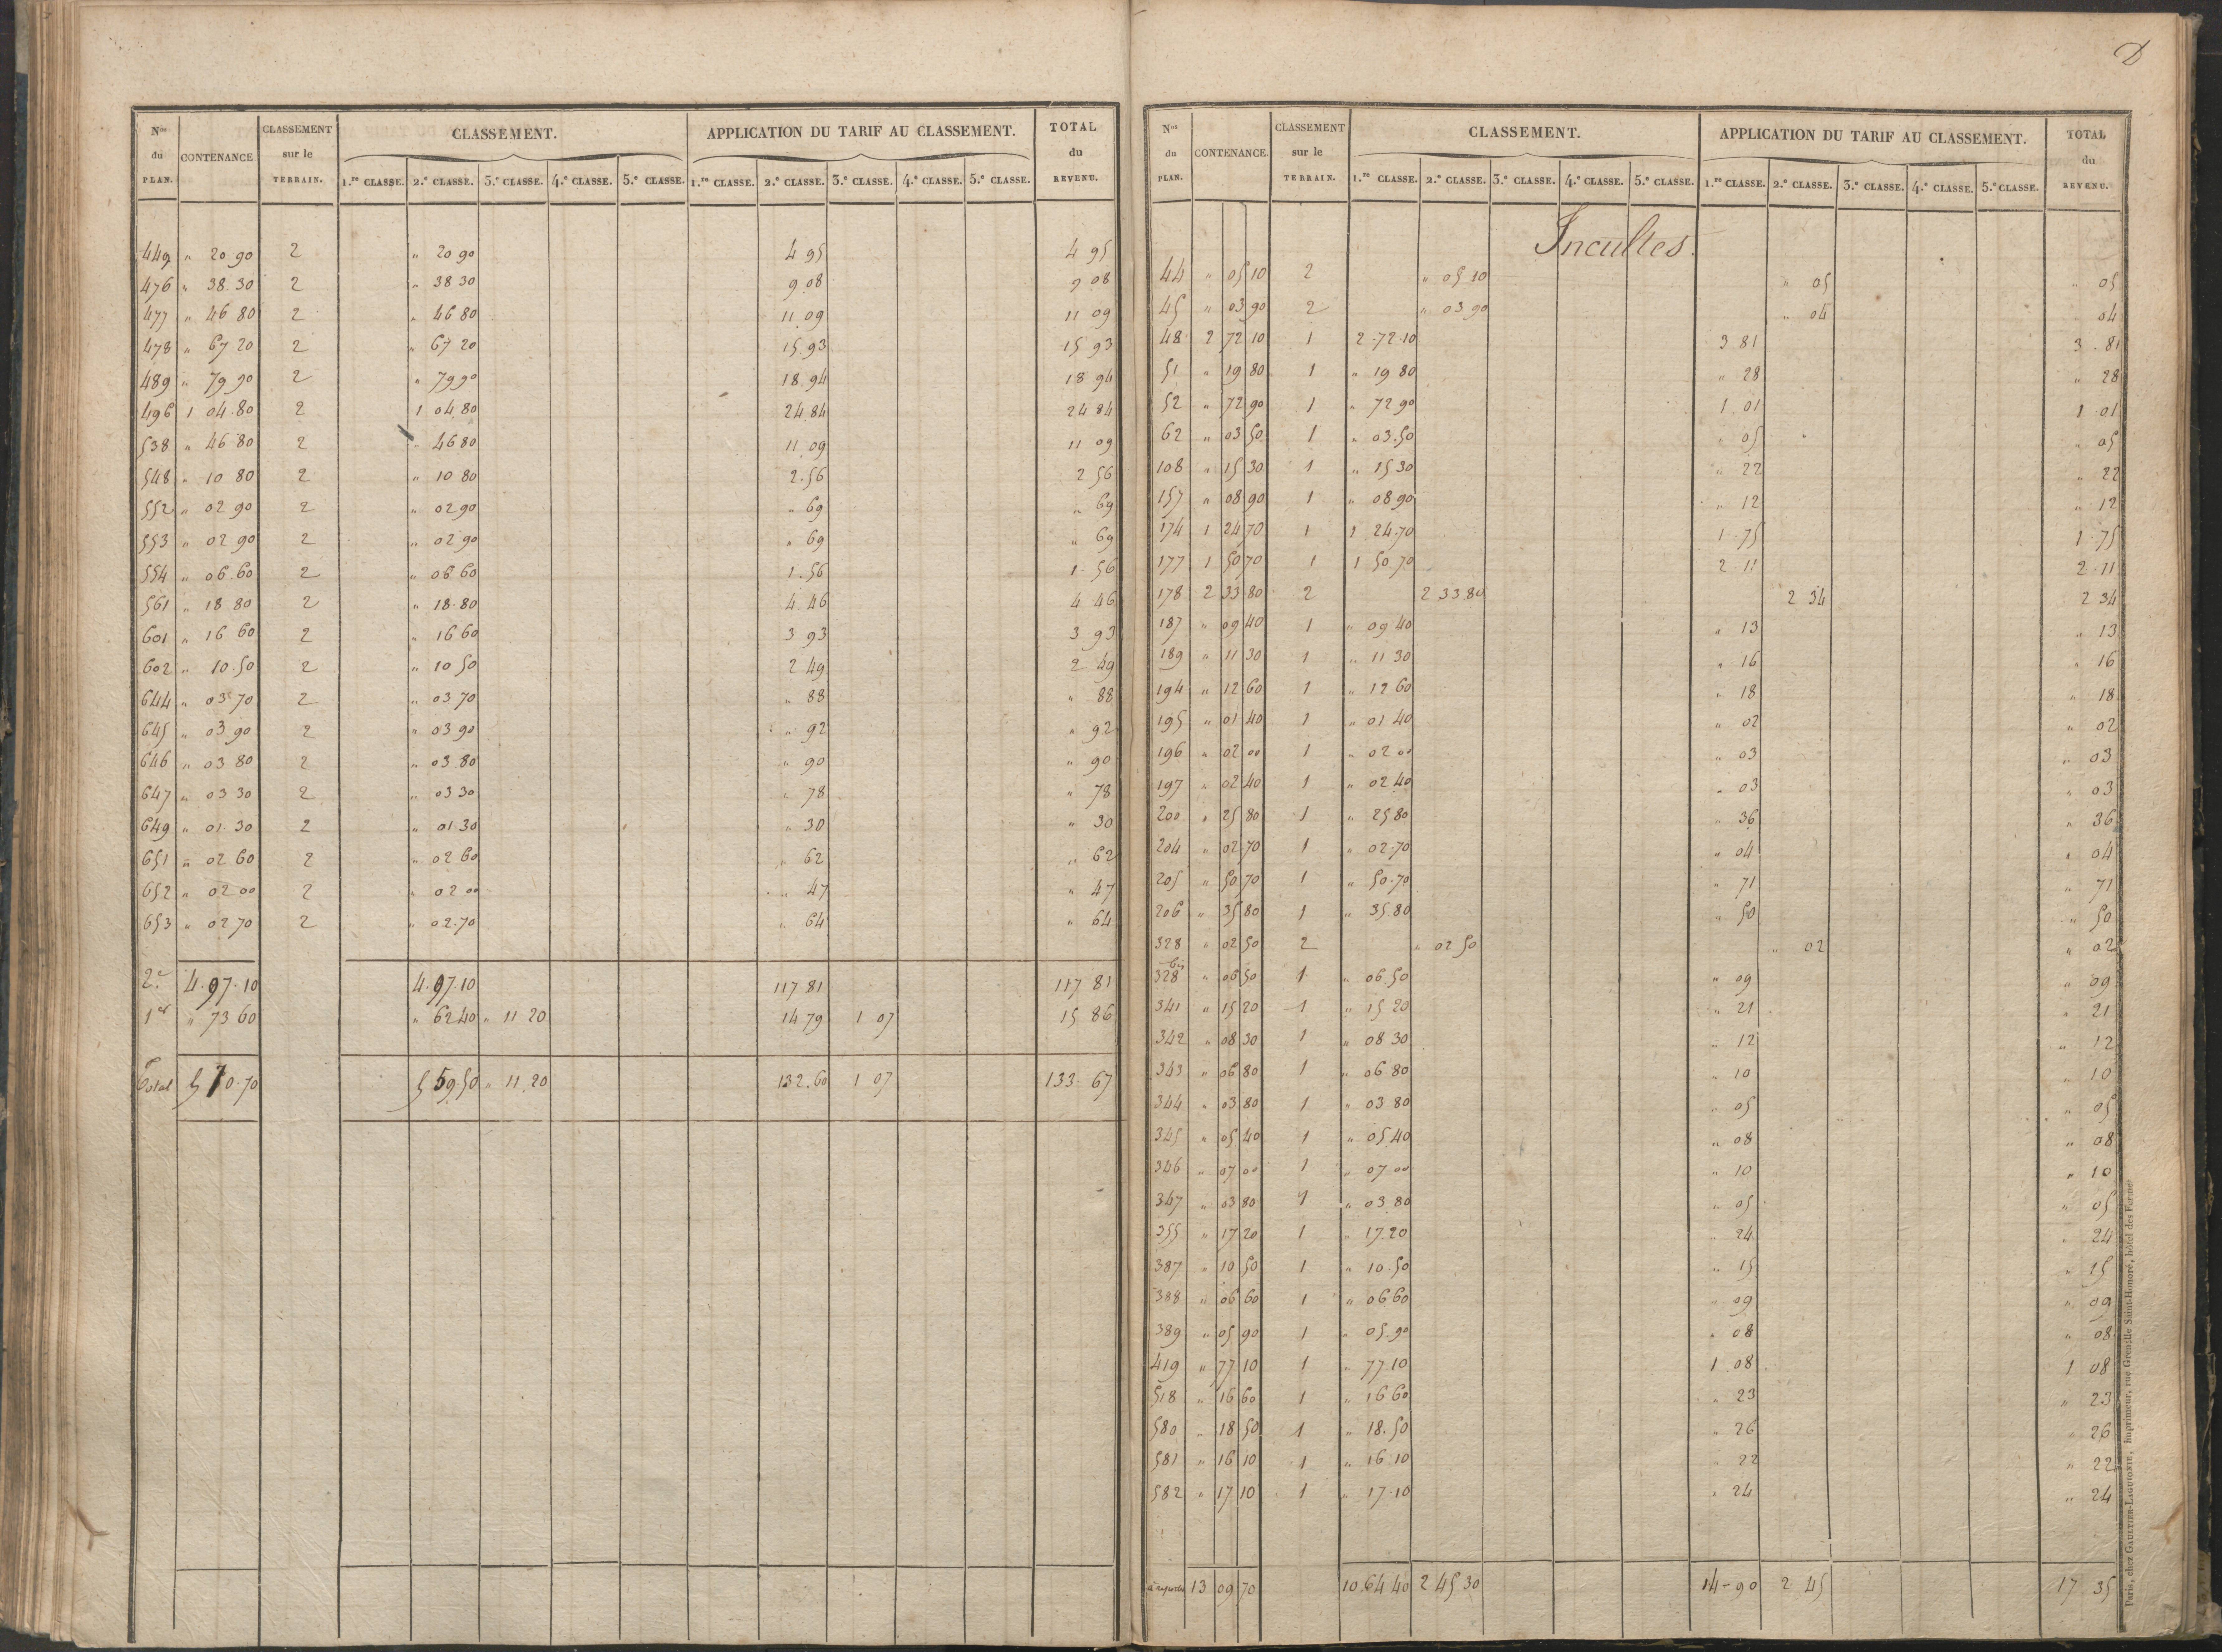 D
Nos du PLAN. CONTENANCE CLASSEMENT sur le TERRAIN. CLASSEMENT. APPLICATION DU TARIF AU CLASSEMENT. TOTAL du REVENU.
1.re CLASSE. 2.e CLASSE. 3.e CLASSE. 4.e CLASSE. 5.e CLASSE. 1.re CLASSE. 2.e CLASSE. 3.e CLASSE. 4.e CLASSE. 5.e CLASSE.
449 " 20 90 2 " 20 90 4 95 4 95
476 " 38.30 2 " 38 30 9 08 9 08
477 " 46 80 2 " 46 80 11 09 11 09
478 " 67 20 2 " 67 20 15.93 15 93
489 " 79 90 2 " 79 90 18.94 18 94
496 1 04.80 2 1 04.80 24 84 24 84
538 " 46 80 2 " 46 80 11 09 11 09
548 " 10 80 2 " 10 80 2.56 2 56
552 " 02 90 2 " 02 90 " 69 " 69
553 " 02 90 2 " 02 90 " 69 " 69
554 " 06.60 2 " 06 60 1.56 1.56
561 " 18 80 2 " 18.80 4 46 4 46
601 " 16 60 2 " 16 60 3 93 3 93
602 " 10.50 2 " 10 50 2 49 2 49
644 " 03 70 2 " 03 70 " 88 " 88
645 " 03 90 2 " 03 90 " 92 " 92
646 " 03 80 2 " 03.80 " 90 " 90
647 " 03 30 2 " 03 30 " 78 " 78
649 " 01.30 2 " 01.30 " 30 " 30
651 " 02 60 2 " 02 60 " 62 " 62
652 " 02 00 2 " 02 00 " 47 " 47
653 " 02 70 2 " 02.70 " 64 " 64
2e 4.97.10 4.97.10 117 81 117 81
1er " 73 60 " 62 40 " 11 20 14 79 1 07 15 86
Total 5 70.70 5 59.50 " 11.20 132.60 1 07 133.67
Nos du PLAN. CONTENANCE. CLASSEMENT sur le TERRAIN. CLASSEMENT. APPLICATION DU TARIF AU CLASSEMENT. TOTAL du REVENU.
1.re CLASSE. 2.e CLASSE. 3.e CLASSE. 4.e CLASSE. 5.e CLASSE. 1.re CLASSE. 2.e CLASSE. 3.e CLASSE. 4.e CLASSE. 5.e CLASSE.
Incultes.
44 " 05 10 2 " 05 10 " 05 " 05
45 " 03 90 2 " 03 90 " 04 " 04
48 2 72 10 1 2.72.10 3 81 3.81
51 " 19 80 1 " 19 80 " 28 " 28
52 " 72 90 1 " 72 90 1.01 1 01
62 " 03 50 1 " 03.50 " 05 " 05
108 " 15 30 1 " 15 30 " 22 " 22
157 " 08 90 1 " 08 90 " 12 " 12
174 1 24 70 1 1 24.70 1.75 1.75
177 1 50 70 1 1 50.70 2.11 2.11
178 2 33 80 2 2 33 80 2 34 2 34
187 " 09 40 1 " 09 40 " 13 " 13
189 " 11 30 1 " 11 30 " 16 " 16
194 " 12 60 1 " 12 60 " 18 " 18
195 " 01 40 1 " 01 40 " 02 " 02
196 " 02 00 1 " 02 00 " 03 " 03
197 " 02 40 1 " 02 40 " 03 " 03
200 " 25 80 1 " 25 80 " 36 " 36
204 " 02 70 1 " 02.70 " 04 " 04
205 " 50 70 1 " 50.70 " 71 " 71
206 " 35 80 1 " 35.80 " 50 " 50
328 " 02 50 2 " 02 50 " 02 " 02
328 bis " 06 50 1 " 06 50 " 09 " 09
341 " 15 20 1 " 15 20 " 21 " 21
342 " 08 30 1 " 08 30 " 12 " 12
343 " 06 80 1 " 06 80 " 10 " 10
344 " 03 80 1 " 03 80 " 05 " 05
345 " 05 40 1 " 05 40 " 08 " 08
346 " 07 00 1 " 07 00 " 10 " 10
347 " 03 80 1 " 03.80 " 05 " 05
355 " 17 20 1 " 17.20 " 24 " 24
387 " 10 50 1 " 10.50 " 15 " 15
388 " 06 60 1 " 06 60 " 09 " 09
389 " 05 90 1 " 05.90 " 08 " 08
419 " 77 10 1 " 77.10 1.08 1 08
518 " 16 60 1 " 16 60 " 23 " 23
580 " 18 50 1 " 18.50 " 26 " 26
581 " 16 10 1 " 16 10 " 22 " 22
582 " 17 10 1 " 17.10 " 24 " 24
à reporter 13 09 70 10.64 40 2 45 30 14-90 2 45 17 35
Paris, chez GAULTIER-LAGUIONIE, Imprimeur, rue Grenelle Saint-Honoré, hôtel des Fermes